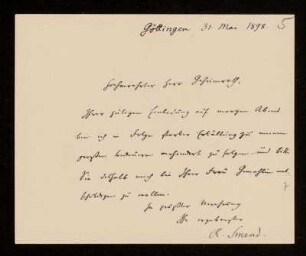 Göttingen 31 Mai 1898. 5
Hochverehrter Herr Geheimrath.
Ihrer gütigen Einladung auf morgen Abend
bin ich in Folge starker Erkältung zu meinem
großen Bedauern verhindert zu folgen und bitte
Sie deshalb mich bei Ihrer Frau Gemahlin ent-
schuldigen zu wollen.
In größter Verehrung
Ihr ergebenster
R. Smend.